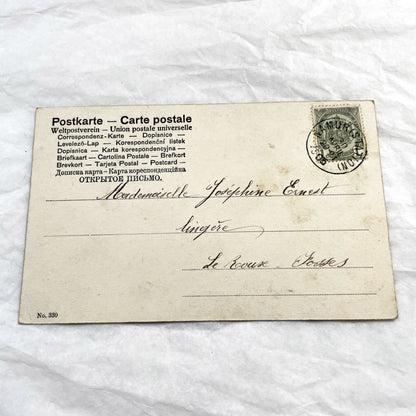 Postkarte — Carte postale
Weltpostverein — Union postale universelle
Correspondenz-Karte — Dopisnice —
Levelező-Lap — Korespondenční listek
Dopisnica — Karta korespondencyjna —
Briefkaart — Cartolina Postale — Brefkort
Brevkort — Tarjeta Postal — Postcard —
Дописна карта — Карта кореспонденційна
ОТКРЫТОЕ ПИСЬМО.
Mademoiselle Joséphine Ernest
lingère
Le Roux - Fosses
No. 330